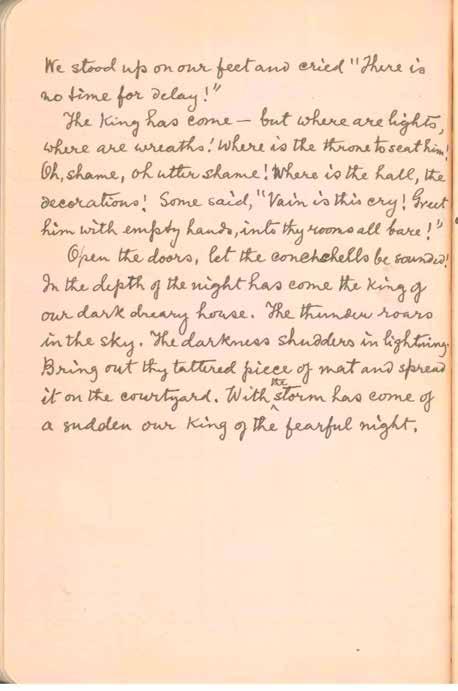 We stood up on our feet and cried "There is
no time for delay!"
The King has come — but where are lights,
where are wreaths! Where is the throne to seat him!
Oh, shame, oh utter shame! Where is the hall, the
decorations! Some said, "Vain is this cry! Greet
him with empty hands, into thy rooms all bare!"
Open the doors, let the conchchells be sounded!
In the depth of the night has come the King of
our dark dreary house. The thunder roars
in the sky. The darkness shudders in lightning.
Bring out thy tattered piece of mat and spread
it on the courtyard. With the storm has come of
a sudden our King of the fearful night.